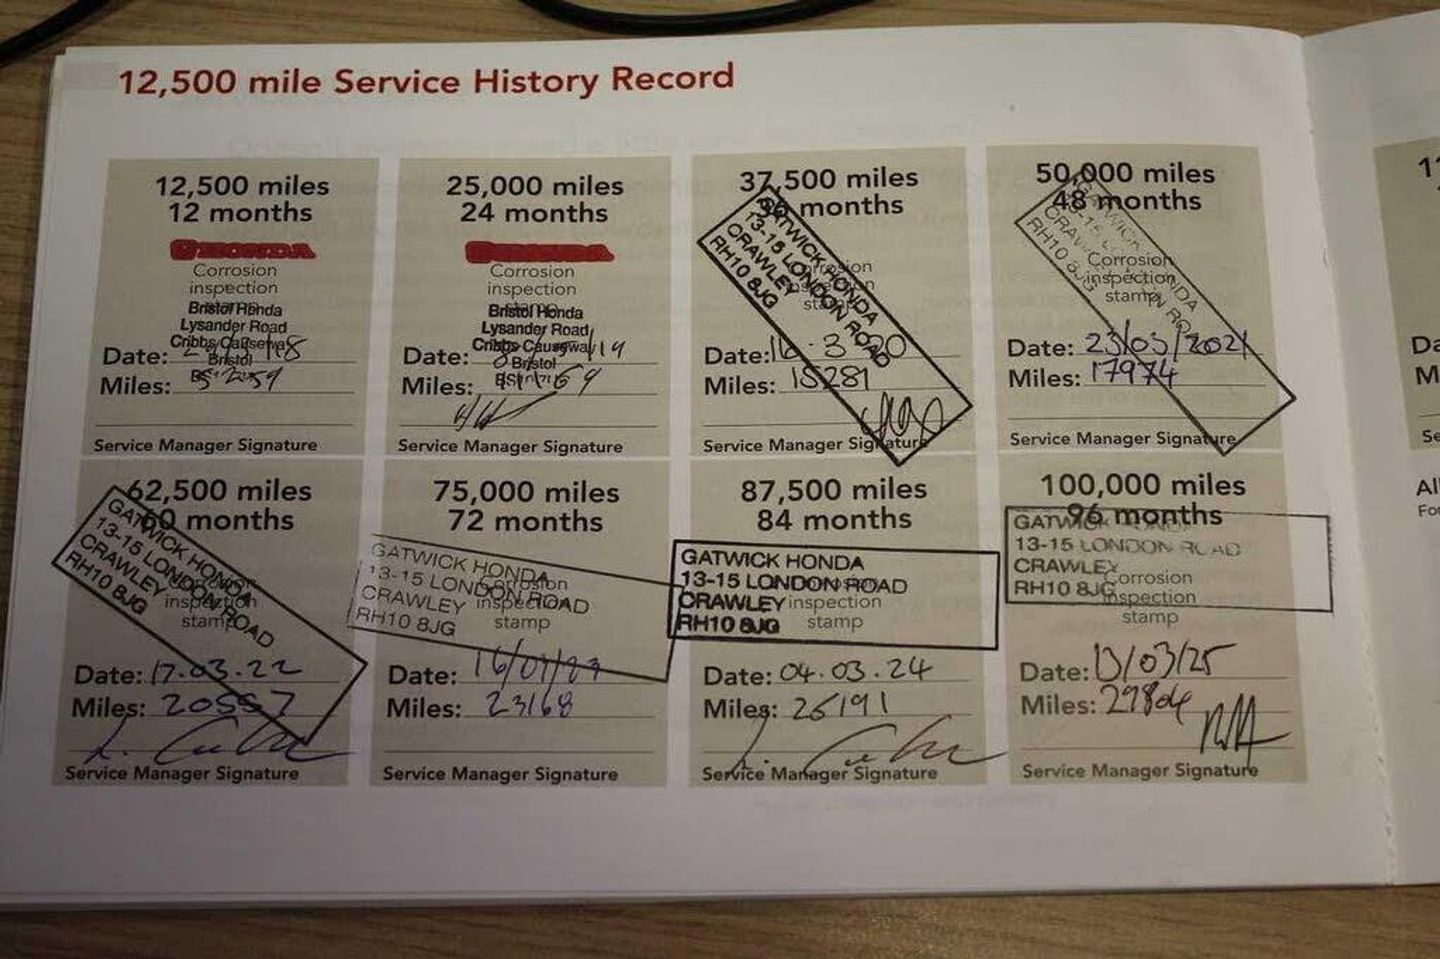 12,500 mile Service History Record
12,500 miles
12 months
HONDA
Corrosion
inspection
stamp
Bristol Honda
Lysander Road
Cribbs Causeway
Bristol
Date:
Miles: 5259
Service Manager Signature
25,000 miles
24 months
Corrosion
inspection
stamp
Bristol Honda
Lysander Road
Cribbs Causeway
Bristol
Date:
Miles:
Service Manager Signature
37,500 miles
36 months
GATWICK HONDA
13-15 LONDON ROAD
CRAWLEY
RH10 8JG
Corrosion
inspection
stamp
Date: 16-3-20
Miles: 15281
Service Manager Signature
50,000 miles
48 months
GATWICK HONDA
13-15 LONDON ROAD
CRAWLEY
RH10 8JG
Corrosion
inspection
stamp
Date: 23/03/2021
Miles: 17974
Service Manager Signature
62,500 miles
60 months
GATWICK HONDA
13-15 LONDON ROAD
CRAWLEY
RH10 8JG
Corrosion
inspection
stamp
Date: 17.03.22
Miles: 20557
Service Manager Signature
75,000 miles
72 months
GATWICK HONDA
13-15 LONDON ROAD
CRAWLEY
RH10 8JG
Corrosion
inspection
stamp
Date:
Miles: 23168
Service Manager Signature
87,500 miles
84 months
GATWICK HONDA
13-15 LONDON ROAD
CRAWLEY
RH10 8JG
inspection
stamp
Date: 04.03.24
Miles: 25191
Service Manager Signature
100,000 miles
96 months
GATWICK HONDA
13-15 LONDON ROAD
CRAWLEY
RH10 8JG
Corrosion
inspection
stamp
Date: 13/03/25
Miles: 29804
Service Manager Signature